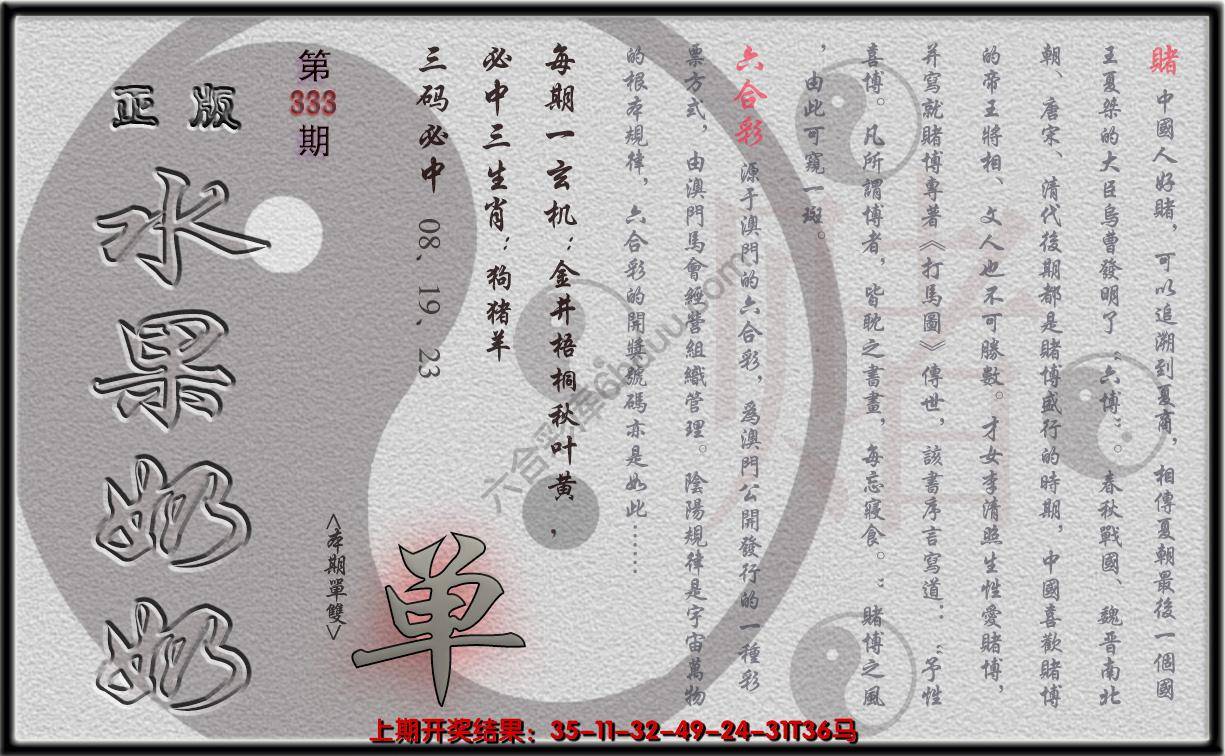 賭 中國人好賭，可以追溯到夏商，相傳夏朝最後一個國
王夏桀的大臣烏曹發明了“六博”。春秋戰國、魏晋南北
朝、唐宋、清代後期都是賭博盛行的時期，中國喜歡賭博
的帝王將相、文人也不可勝數。才女李清照生性愛賭博，
并寫就賭博專著《打馬圖》傳世，該書序言寫道：“予性
喜博。凡所謂博者，皆耽之書畫，每忘寢食。”賭博之風
，由此可窺一斑。
六合彩 源于澳門的六合彩，爲澳門公開發行的一種彩
票方式，由澳門馬會經營組織管理。陰陽規律是宇宙萬物
的根本規律，六合彩的開獎號碼亦是如此……
每期一玄机：金井梧桐秋叶黄，
必中三生肖：狗猪羊
三码必中 08、19、23
第
333
期
正版
水果奶奶
<本期單雙>
单
上期开奖结果：35-11-32-49-24-31T36马
六合彩库6hduuu.com